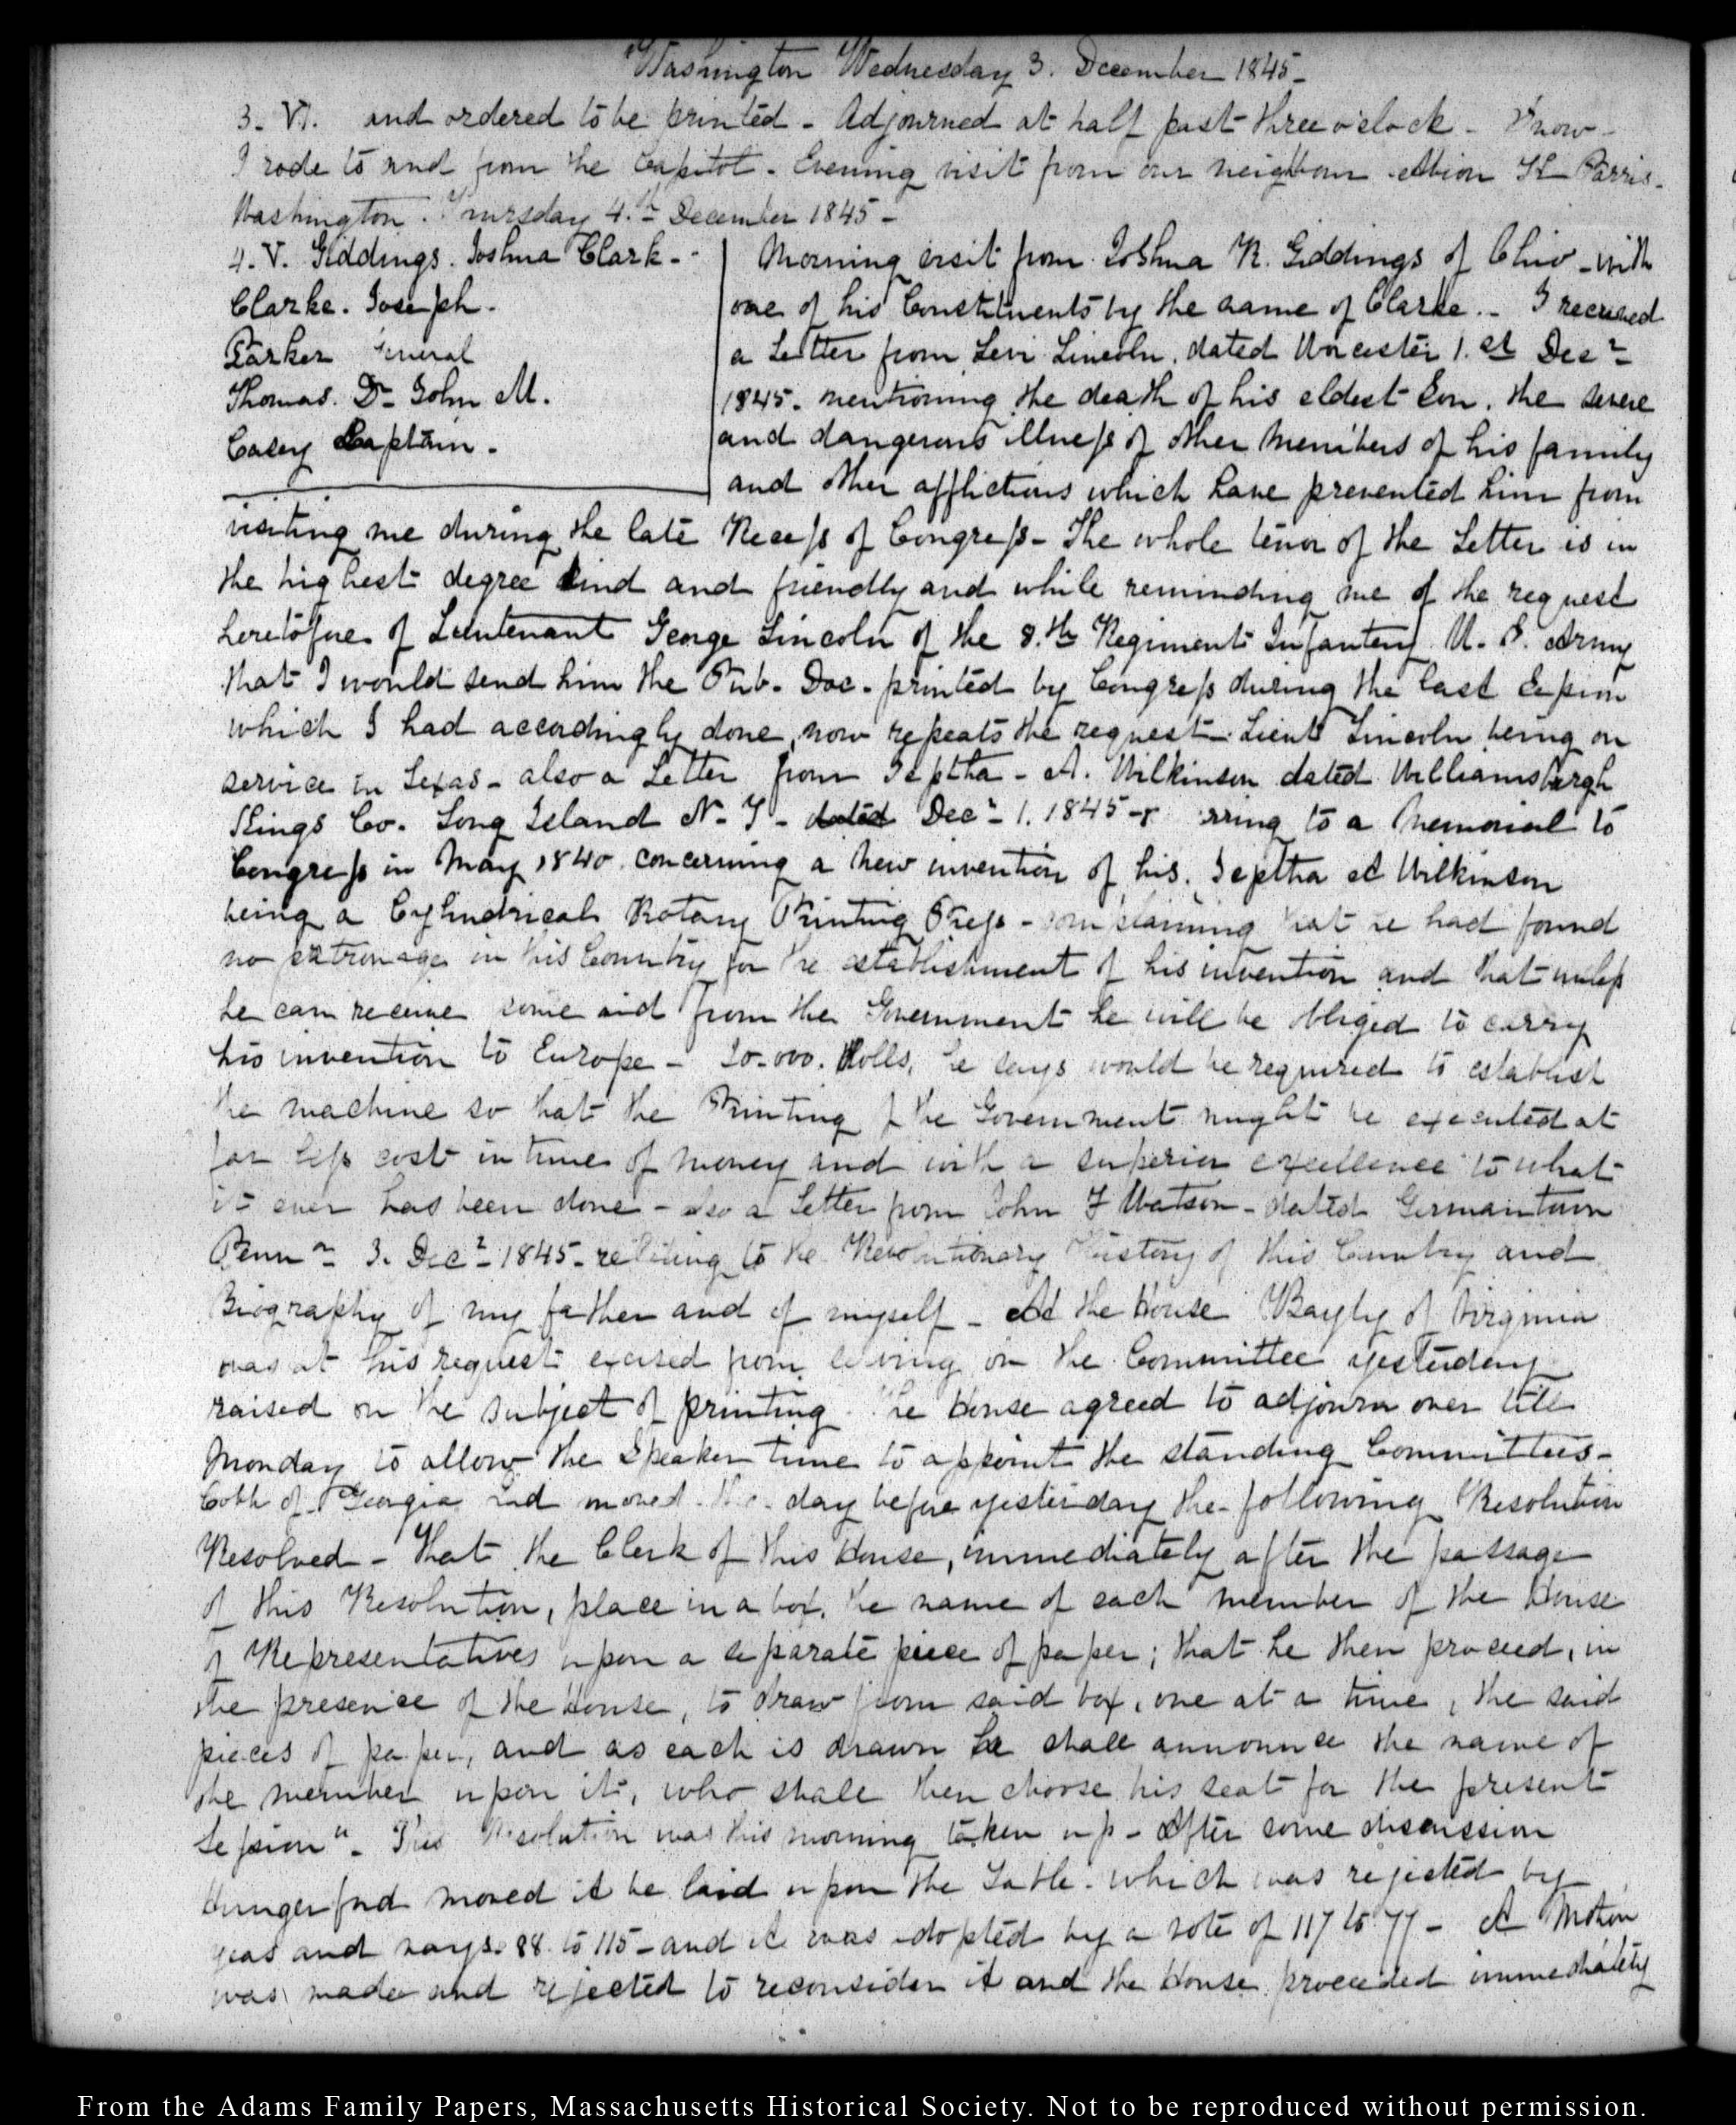 Washington Wednesday 3. December 1845-
3. VI. and ordered to be printed - Adjourned at half past three o'clock - Snow -
I rode to and from the Capitol. Evening visit from our neighbour Albion K Parris.
Washington. Thursday 4.th December 1845 -
4. V. Giddings. Joshua Clark - -
Clarke. Joseph.
Parker General
Thomas. Dr. John M.
Casey Captain.
Morning visit from Joshua R. Giddings of Ohio - with
one of his Constituents by the name of Clarke. - I received
a Letter from Levi Lincoln, dated Worcester 1.st Decr
1845. mentioning the death of his eldest Son. the severe
and dangerous illness of other members of his family
and other afflictions which have prevented him from
visiting me during the late Recess of Congress - The whole tenor of the Letter is in
the highest degree kind and friendly and while reminding me of the request
heretofore of Lieutenant George Lincoln of the 8.th Regiment Infantery U. S. Army
that I would send him the Pub. Doc. printed by Congress during the last Session
which I had accordingly done, now repeats the request - Lieut Lincoln being on
service in Texas - also a Letter from Jeptha - A. Wilkinson dated Williamsburgh
Kings Co. Long Island N-Y - dated Decr 1. 1845 - rring to a Memorial to
Congress in May 1840 concerning a new invention of his. Jeptha A Wilkinson
being a Cylindrical Rotary Printing Press - complaining that he had found
no patronage in this Country for the establishment of his invention and that unless
he can receive some aid from the Government he will be obliged to carry
his invention to Europe - 20.000. Dolls, he says would be required to establish
the machine so that the Printing of the Government might be executed at
far less cost in time of money and with a superior excellence to what
it ever has been done - also a Letter from John F Watson - dated Germantown
Penna 3. Decr 1845 - relating to the Revolutionary History of this Country and
Biography of my father and of myself - At the House Bayly of Virginia
was at his request excused from serving on the Committee yesterday
raised on the subject of printing. The House agreed to adjourn over till
Monday to allow the Speaker time to appoint the standing Committees -
Cobb of Georgia had moved the day before yesterday the following Resolution
Resolved - That the Clerk of this House, immediately after the passage
of this Resolution, place in a box, the name of each member of the House
of Representatives upon a separate piece of paper; that he then proceed, in
the presence of the House, to draw from said box, one at a time, the said
pieces of paper, and as each is drawn he shall announce the name of
the member upon it, who shall then choose his seat for the present
Session". This Resolution was this morning taken up - After some discussion
Hungerford moved it be laid upon the Table. which was rejected by
yeas and nays. 88 to 115 - and it was adopted by a vote of 117 to 77 - A Motion
was made and rejected to reconsider it and the House proceeded immediately
From the Adams Family Papers, Massachusetts Historical Society. Not to be reproduced without permission.